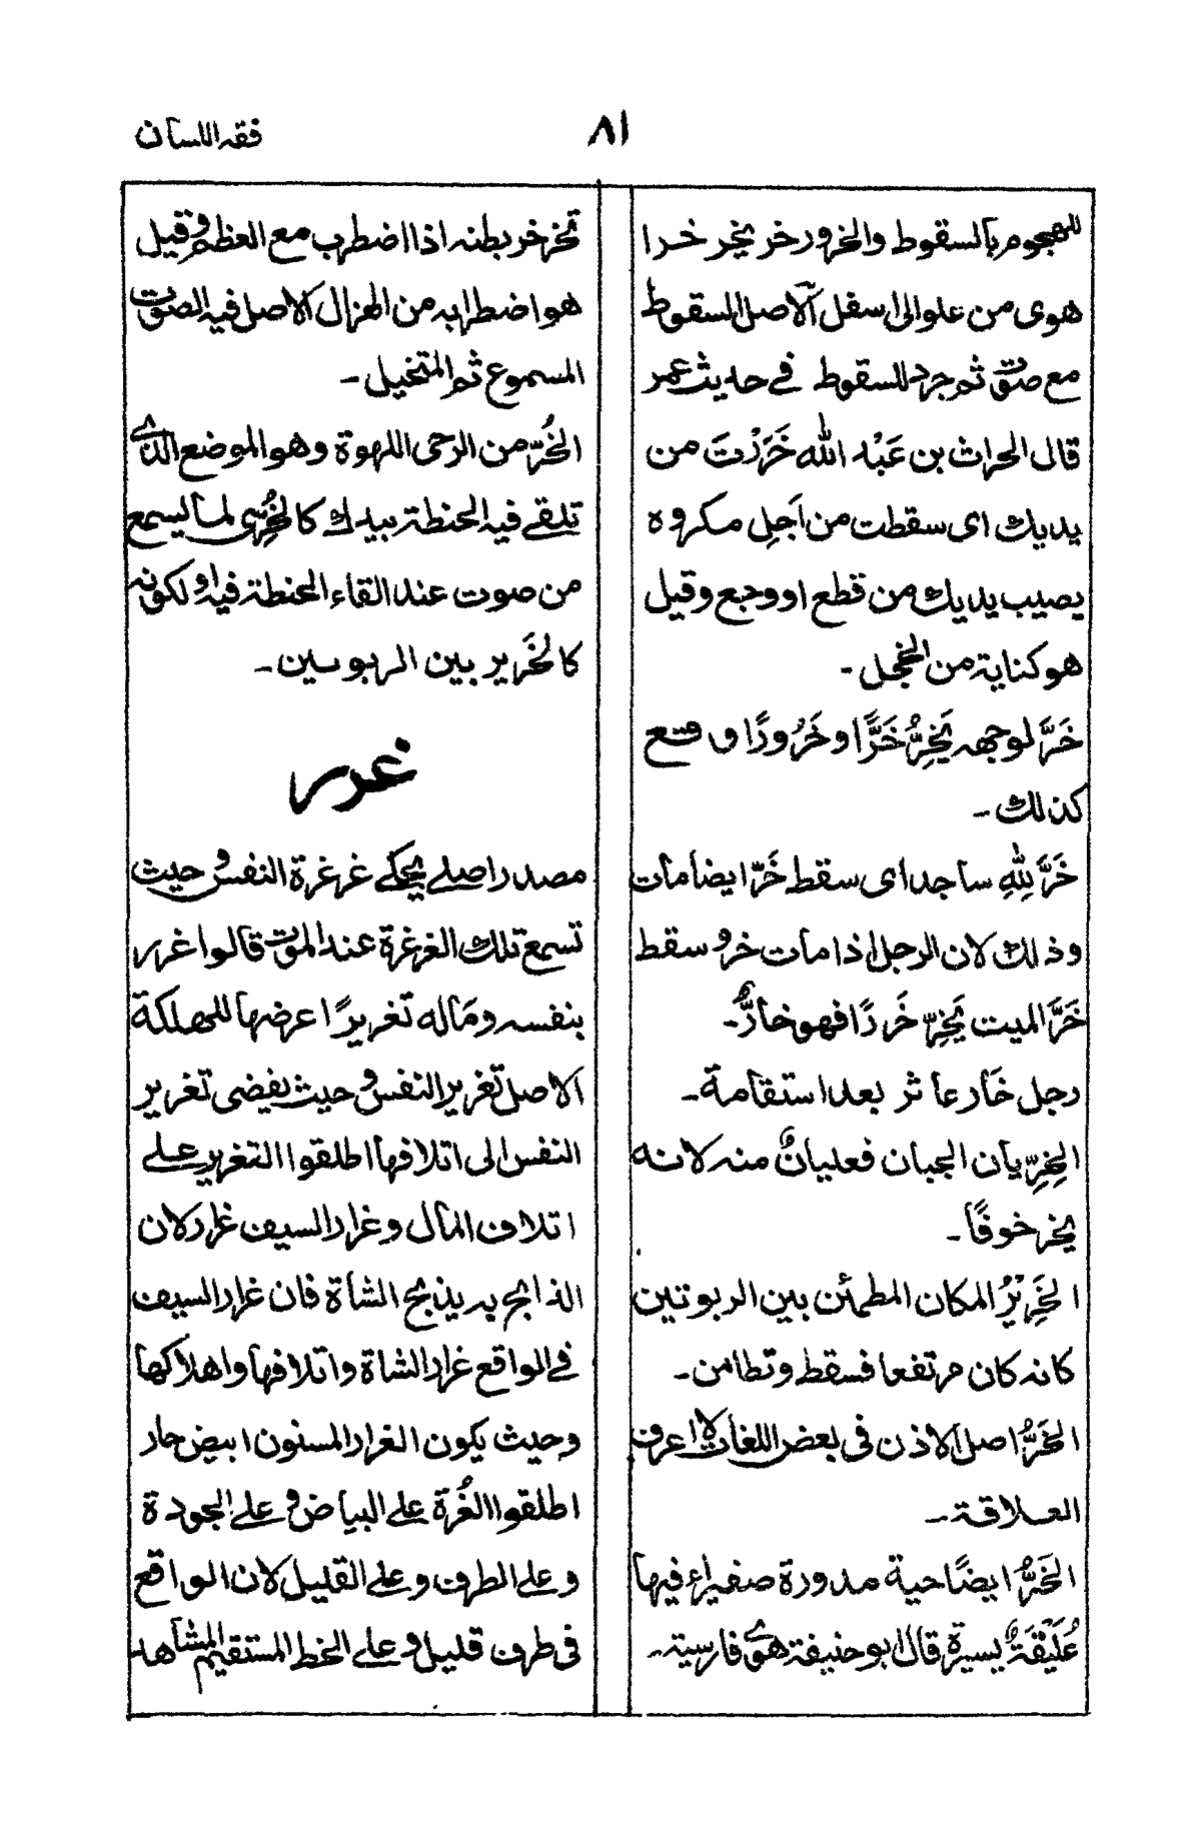 فقه اللسان
٨١
للهجوم بالسقوط والخرور خر يخر خرا
هوى من علو الى اسفل الاصل السقوط
مع صوت ثم جرد للسقوط في حديث عمر
قال الحراث بن عَبْد الله خَرَرْتَ من
يديك اى سقطت من اَجلِ مكروه
يصيب يديك من قطع او وجع وقيل
هو كناية من الخجل ـ
خَرَّ لوجهه يَخِرُّ خَرًّا وخَرُورًا وقع
كذلك ـ
خَرَّ لِلّٰهِ ساجدا اى سقط خَرّ ايضا مات
وذلك لان الرجل اذا مات خر و سقط
خَرَّ الميت يَخِرّ خَررًا فهو خارٌّ ـ
رجل خَار عاثر بعد استقامة ـ
الخِرِّيان الجبان فعليانٌ منه لانه
يخر خوفًا ـ
الخَرِيْرُ المكان المطمئن بين الربوتين
كانه كان مرتفعا فسقط وتطامن ـ
الخَرُّ اصل الاذن فى بعض اللغات لا اعرف
العلاقة ـ
الخَرُّ ايضًا حبة مدورة صفيراء فيها
عُلَيْقَةٌ يسيرة قال ابو حنيفة هى فارسية ـ
تخرخر بطنه اذا اضطرب مع العظم وقيل
هو اضطرابه من الهزال الاصل فيه الصوت
المسموع ثم المتخيل ـ
الخُرّ من الرحى اللهوة وهو الموضع الذى
تلقى فيه الحنطة بيدك كالخُرِّى لما يسمع
من صوت عند القاء الحنطة فيه او لكونه
كالخَرير بين الربوسين ـ
غرر
مصدر اصلى يحكى غرغرة النفس و حيث
تسمع تلك الغرغرة عند الموت قالوا غرر
بنفسه ومَاله تغريرًا عرضها للهلكة
الاصل تغرير النفس و حيث يفضى تغرير
النفس الى اتلافها اطلقوا التغرير على
اتلاف المال وغرار السيف غرار لان
الذابح به يذبح الشاة فان غرار السيف
فى الواقع غرار الشاة واتلافها واهلاكها
وحيث يكون الغرار المسنون ابيض حار
اطلقوا الغُرة على البياض و على الجودة
وعلى الطرف وعلى القليل لان الواقع
فى طرف قليل وعلى الخط المستقيم المشاهد